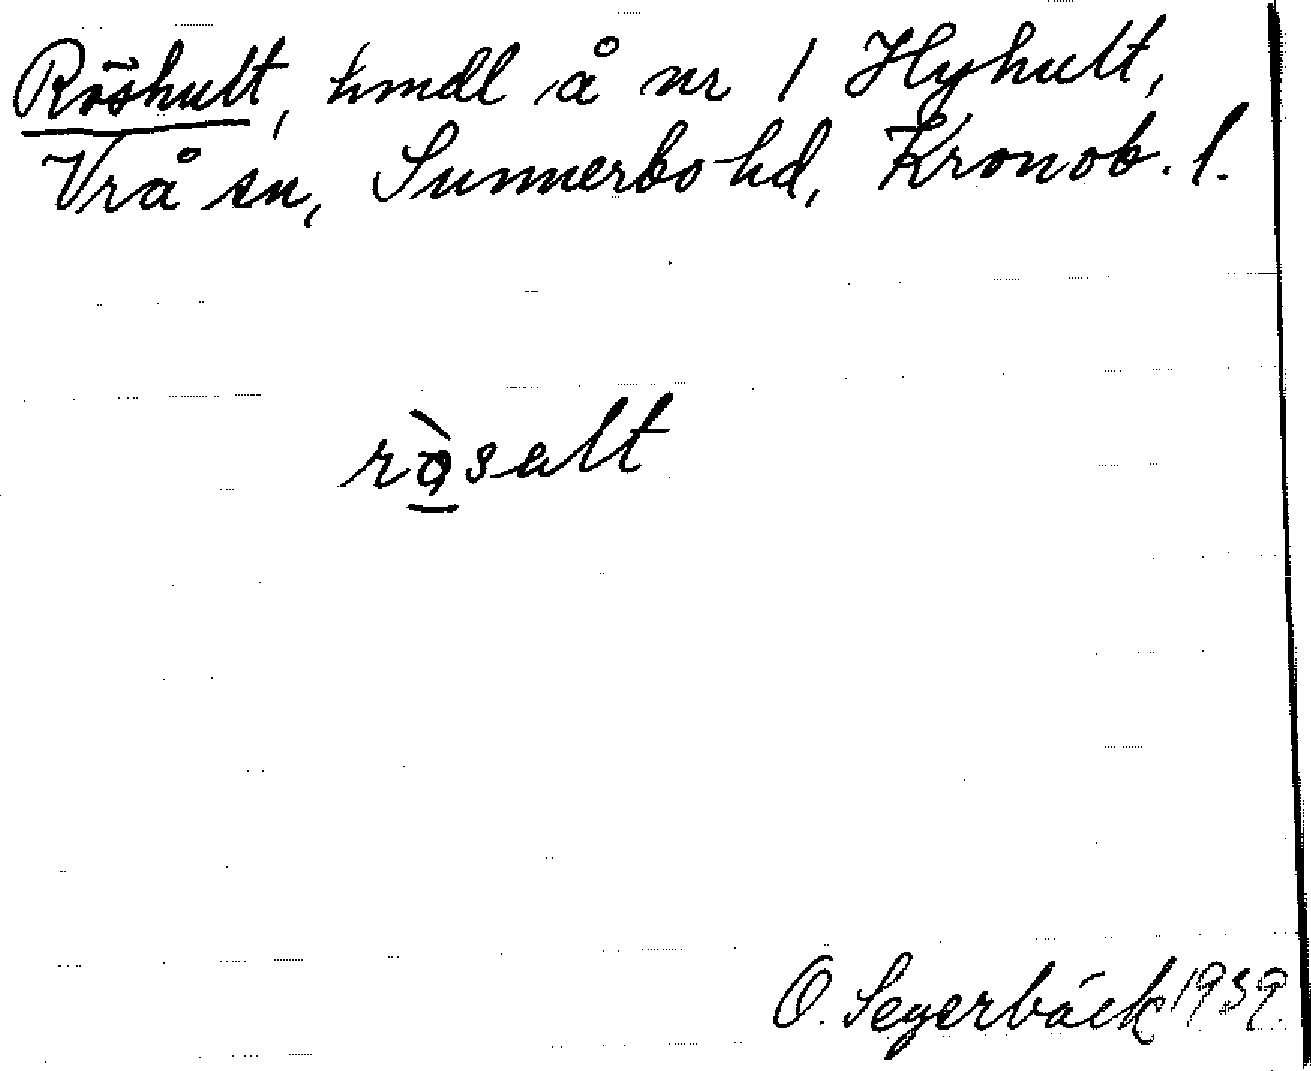 Röshult, hmdl å nr 1 Hyhult,
Vrå sn, Sunnerbo hd, Kronob. l.
rò̱salt
O. Segerbäck 1939.